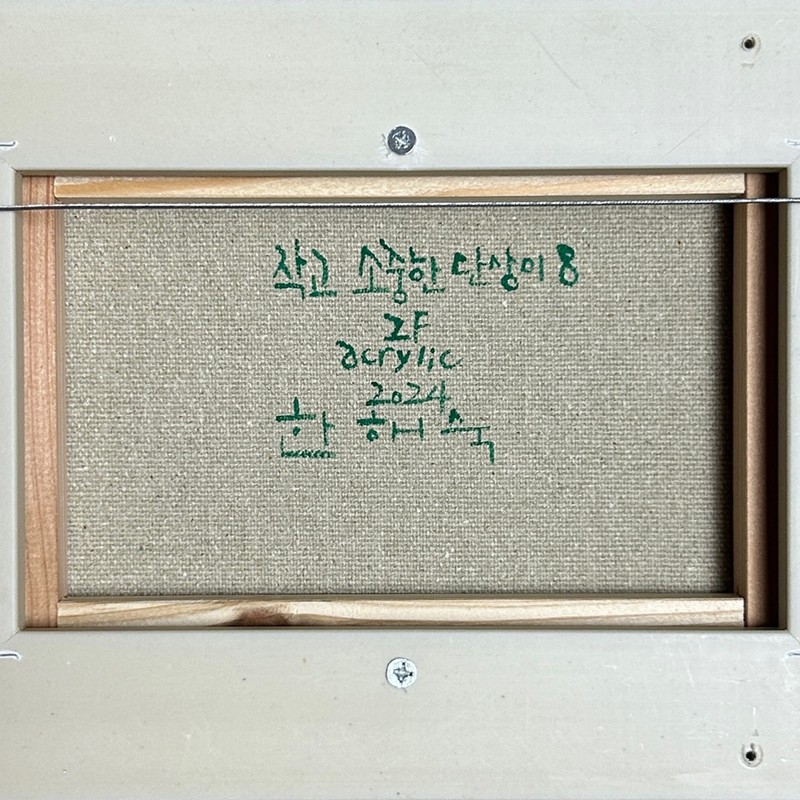 작고 소중한 단상미 8
2F
acrylic
2024
한 해 숙